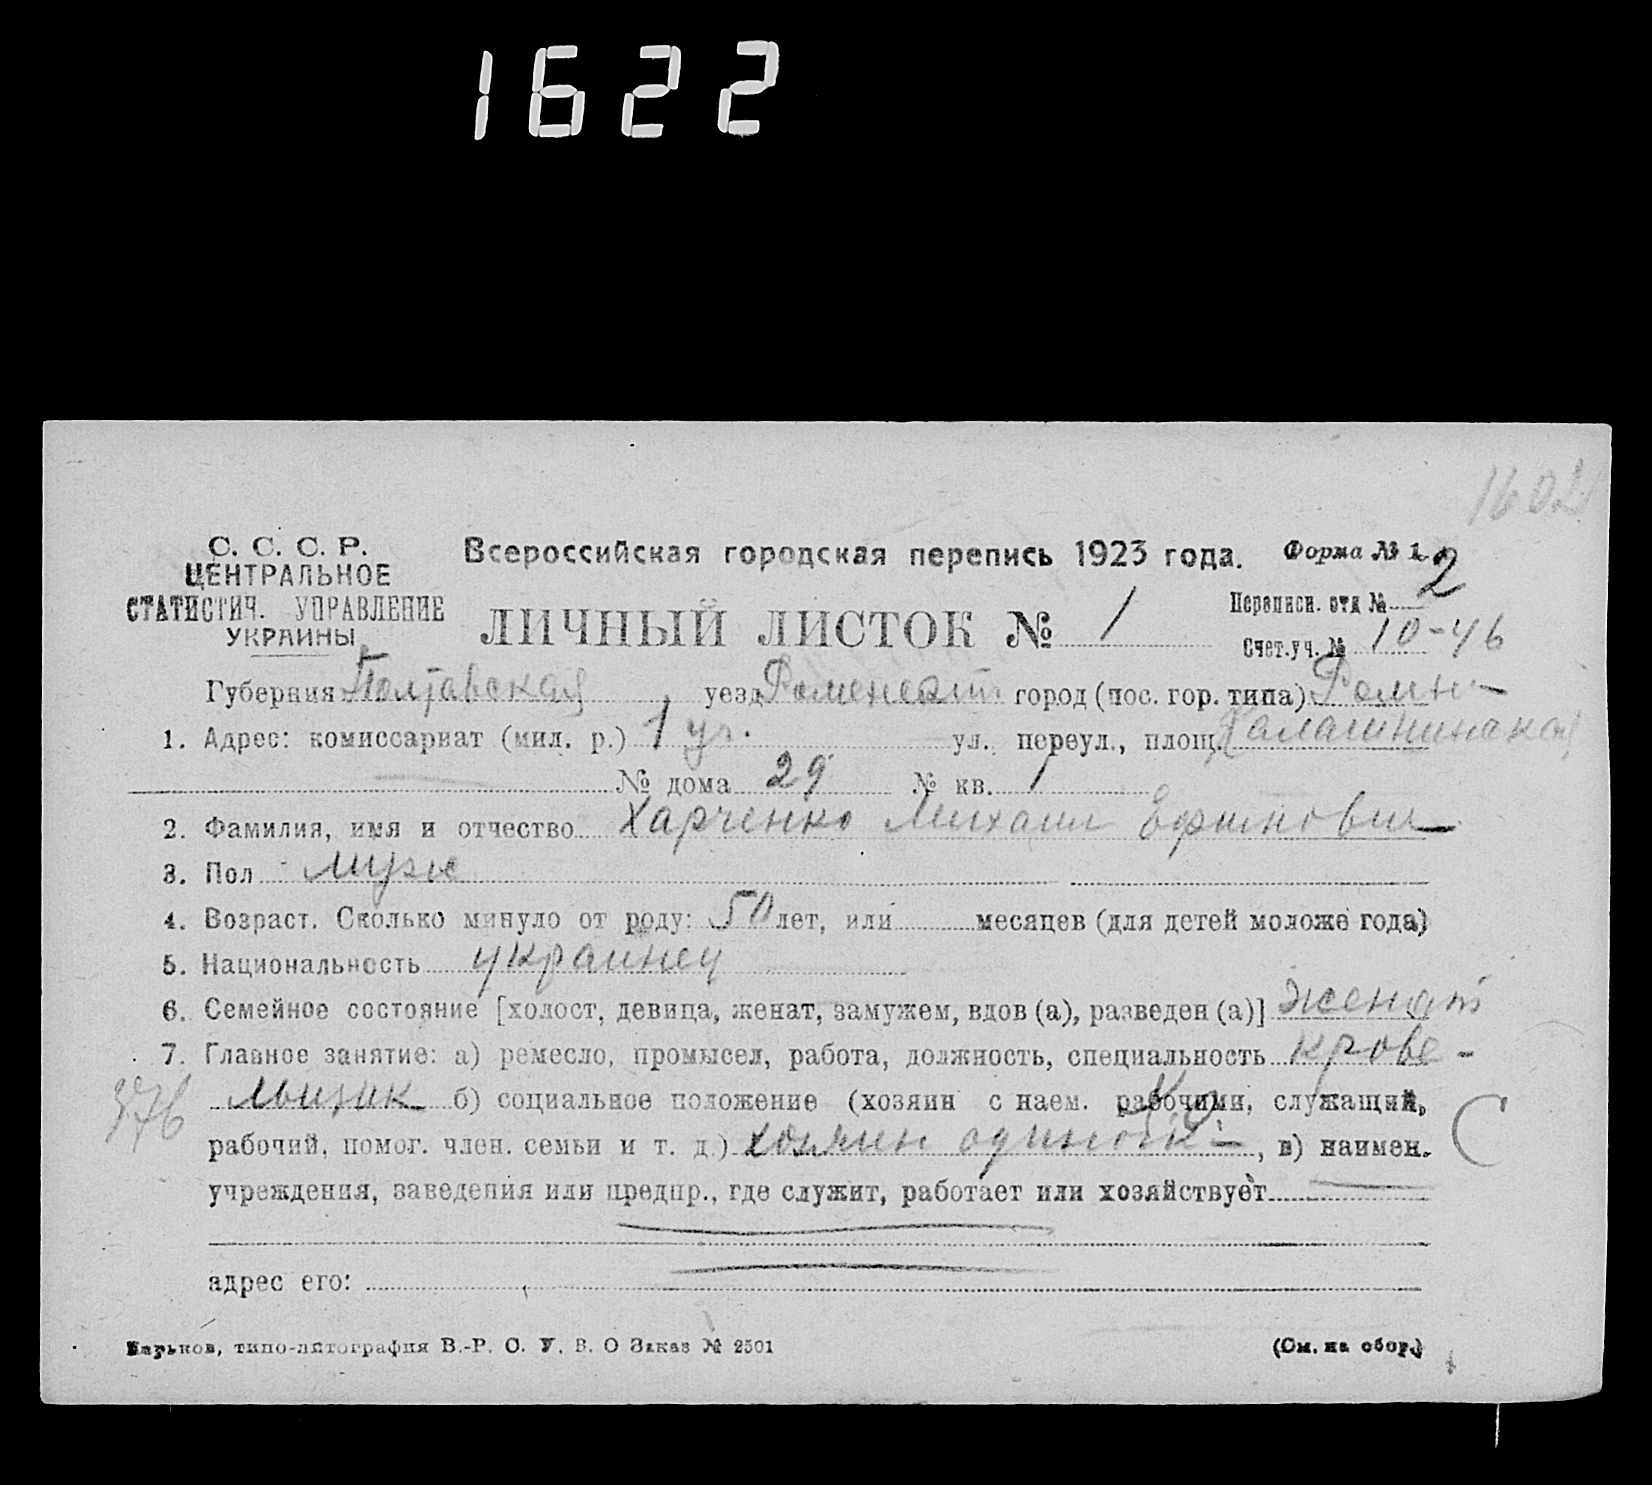 1622
1602
С. С. С. Р.
ЦЕНТРАЛЬНОЕ
СТАТИСТИЧ. УПРАВЛЕНИЕ
УКРАИНЫ
Всероссийская городская перепись 1923 года.
Форма № 1
ЛИЧНЫЙ ЛИСТОК № 1
Переписн. отд № 2
Счет.уч. № 10-46
Губерния Полтавская уезд Роменский город (пос. гор. типа) Ромны
1. Адрес: комиссариат (мил. р.) 1 уч. ул., переул., площ.
№ дома 29 № кв. 1
2. Фамилия, имя и отчество Харченко Михаил Ефимович
3. Пол муж
4. Возраст. Сколько минуло от роду: 50 лет, или месяцев (для детей моложе года)
5. Национальность украинец
6. Семейное состояние [холост, девица, женат, замужем, вдов (а), разведен (а)] женат
7. Главное занятие: а) ремесло, промысел, работа, должность, специальность крове-
376 льщик б) социальное положение (хозяин с наем. рабочими, служащий,
рабочий, помог. член. семьи и т. д.) хозяин одиночк-, в) наимен. С
учреждения, заведения или предпр., где служит, работает или хозяйствует
адрес его:
Харьков, типо-литография В.-Р. С. У. В. О Заказ № 2501
(См. на обор.)